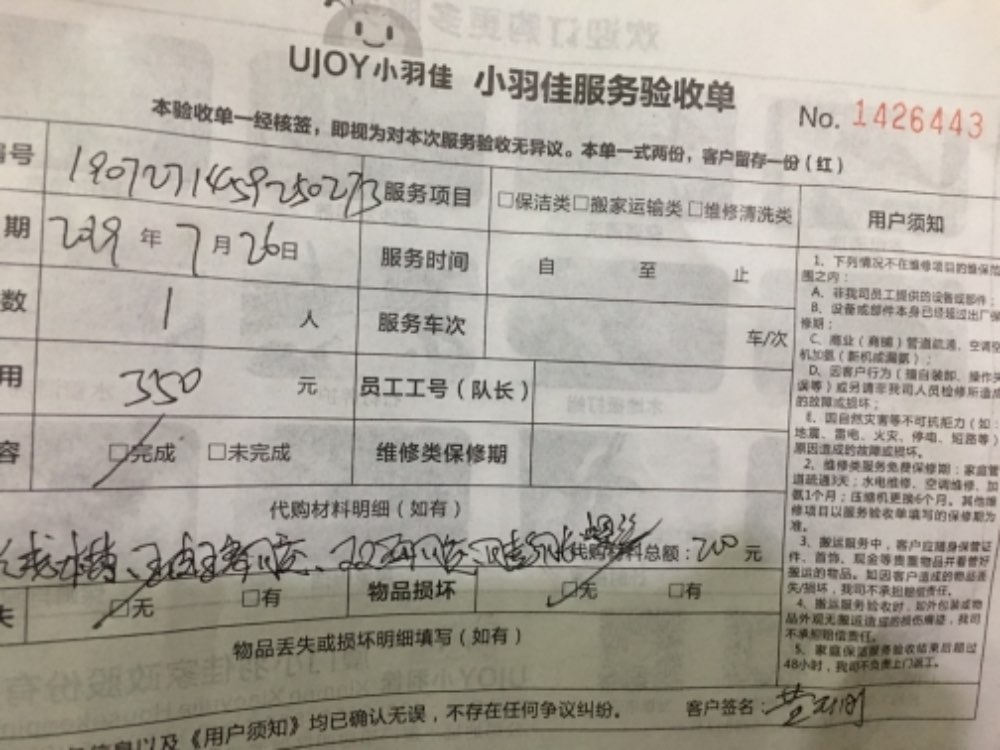 UJOY小羽佳 小羽佳服务验收单
No. 1426443
本验收单一经核签，即视为对本次服务验收无异议。本单一式两份，客户留存一份（红）
号 1907271459250273 服务项目 □保洁类□搬家运输类□维修清洗类
期 2019 年 7 月 26 日 服务时间 自 至 止
数 1 人 服务车次 车/次
用 350 元 员工工号（队长）
容 □完成 □未完成 维修类保修期
代购材料明细（如有）
代购材料总额：200 元
失 □无 □有 物品损坏 □无 □有
物品丢失或损坏明细填写（如有）
信息以及《用户须知》均已确认无误，不存在任何争议纠纷。 客户签名：
用户须知
1、下列情况不在维修项目的维保范
围之内：
A、非我司员工提供的设备或部件；
B、设备或部件本身已经超过出厂保
修期；
C、商业（商铺）管道疏通、空调空
机加氨（新机或漏氨）；
D、因客户行为（擅自装卸、操作失
误等）或另请非我司人员检修所造成
的故障或损坏；
E、因自然灾害等不可抗拒力（如：
地震、雷电、火灾、停电、短路等）
原因造成的故障或损坏。
2、维修类服务免费保修期：家庭管
道疏通3天；水电维修、空调维修、加
氨1个月；压缩机更换6个月。其他维
修项目以服务验收单填写的保修期为
准。
3、搬运服务中，客户应随身保管证
件、首饰、现金等贵重物品并看管好
搬运的物品。如因客户造成的物品丢
失/损坏，我司不承担赔偿责任。
4、搬运服务验收时，如外包装或物
品外观无搬运造成的损伤痕迹，我司
不承担赔偿责任。
5、家庭保洁服务验收结束后超过
48小时，我司不负责上门返工。